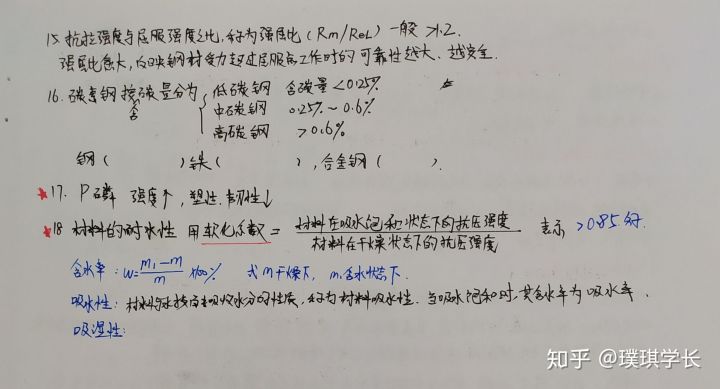 15. 抗拉强度与屈服强度之比,称为强屈比(Rm/ReL)一般>1.2.
强屈比愈大,反映钢材受力超过屈服点工作时的可靠性越大、越安全.
16. 碳素钢按含碳量分为 低碳钢 含碳量<0.25%
中碳钢 0.25%~0.6%
高碳钢 >0.6%
钢( )铁( ),合金钢( ).
★17. P磷 强度↑,塑性.韧性↓
★18 材料的耐水性 用软化系数= 材料在吸水饱和状态下的抗压强度 / 材料在干燥状态下的抗压强度 表示 >0.85
含水率: W=(m₁-m)/m ×100% 式m干燥下, m₁含水状态下.
吸水性: 材料吸收水分的性质,称为材料吸水性. 当吸水饱和时,其含水率为吸水率.
吸湿性:
知乎 @璞琪学长